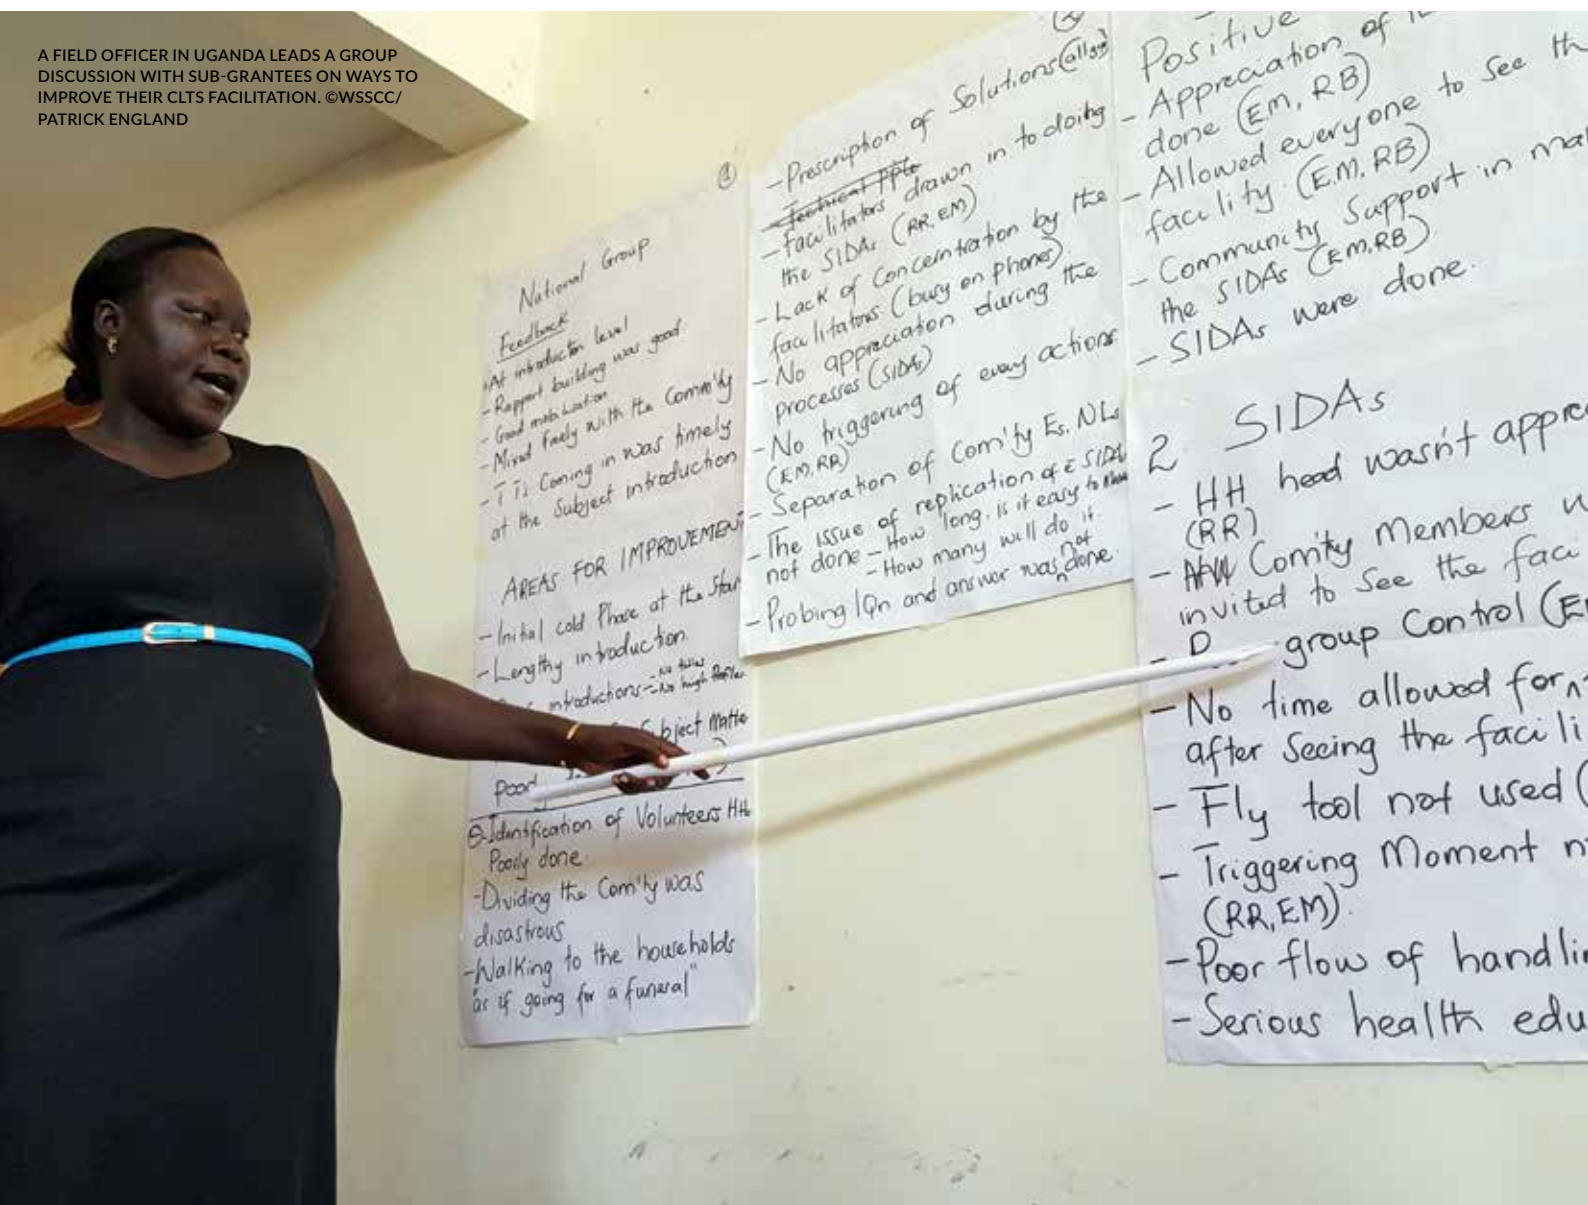 A FIELD OFFICER IN UGANDA LEADS A GROUP
DISCUSSION WITH SUB-GRANTEES ON WAYS TO
IMPROVE THEIR CLTS FACILITATION. ©WSSCC/
PATRICK ENGLAND
1
National Group
Feedback
At introduction level
- Rapport building was good
- Good mobilisation
- Mixed freely with the Com'ty
- Coming in was timely
at the Subject introduction
AREAS FOR IMPROVEMENT
- Initial cold Phase at the Star
- Lengthy introduction.
introductions - No
- No high
bject Matte
Poor
- Identification of Volunteers HH
Poorly done
- Dividing the Com'ty was
disastrous
- Walking to the households
"as if going for a funeral"
- Prescription of Solutions
- Facilitators drawn in to doing
the SIDAs (RR, EM)
- Lack of Concerntration by the
facilitators (busy on phones)
- No appreciation during the
processes (SIDAs)
- No triggering of every actions
(EM, RR)
- Separation of Com'ty Es. NLs
- The issue of replication of SIDA
not done - How long. is it easy to
- How many will do it.
- Probing /Qn and answer was not done.
Positive
- Appreciation of
done (EM, RB)
- Allowed everyone to see th
facility. (EM, RB)
- Community Support in ma
the SIDAs (EM, RB)
- SIDAs were done.
2. SIDAs
- HH head wasn't appre
(RR)
- Com'ty Members w
invited to see the faci
group Control (E
- No time allowed for
after seeing the facili
- Fly tool not used (
- Triggering Moment n
(RR, EM).
- Poor flow of handlin
- Serious health edu